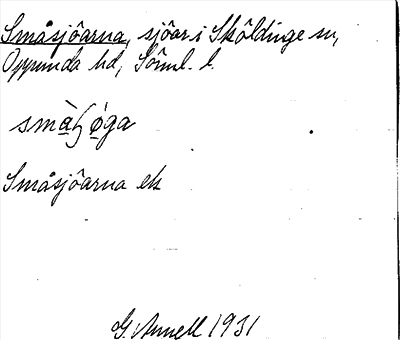 Småsjöarna, sjöar i Sköldinge sn,
Oppunda hd, Söml. l.
Småsjöarna ek
G. Annell 1931